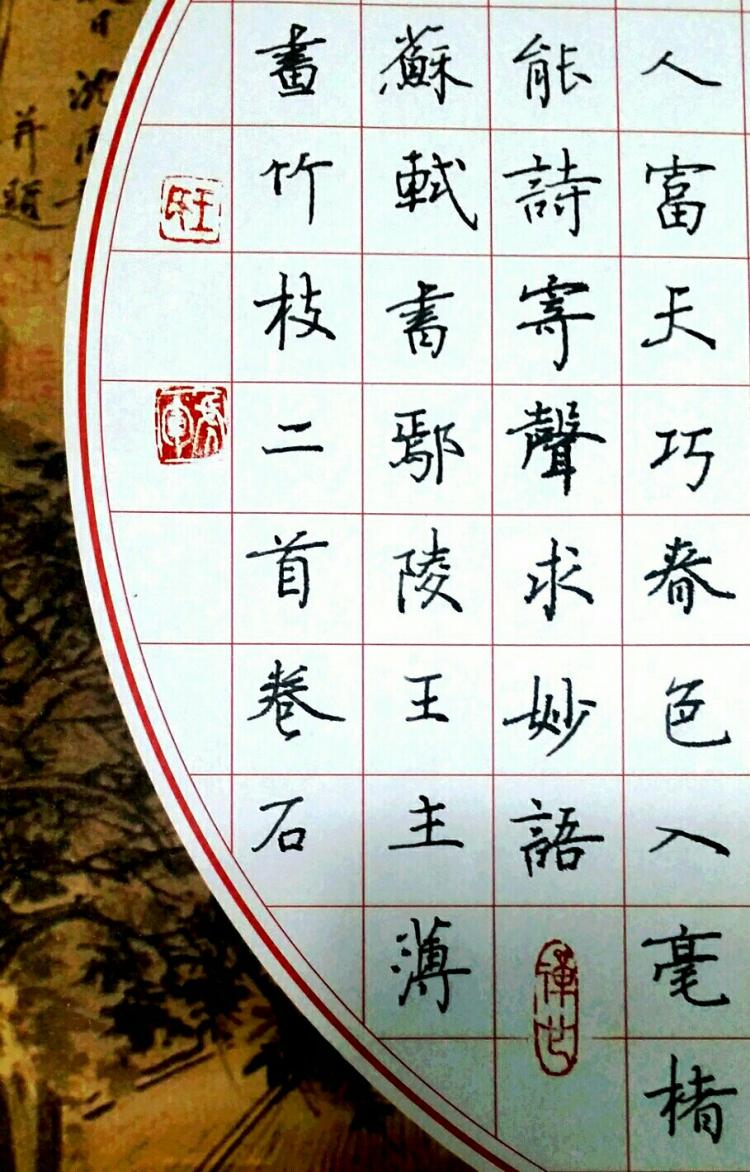 人富天巧春色入毫楮
能詩寄聲求妙語
蘇軾書鄢陵王主薄
畫竹枝二首卷石
并題